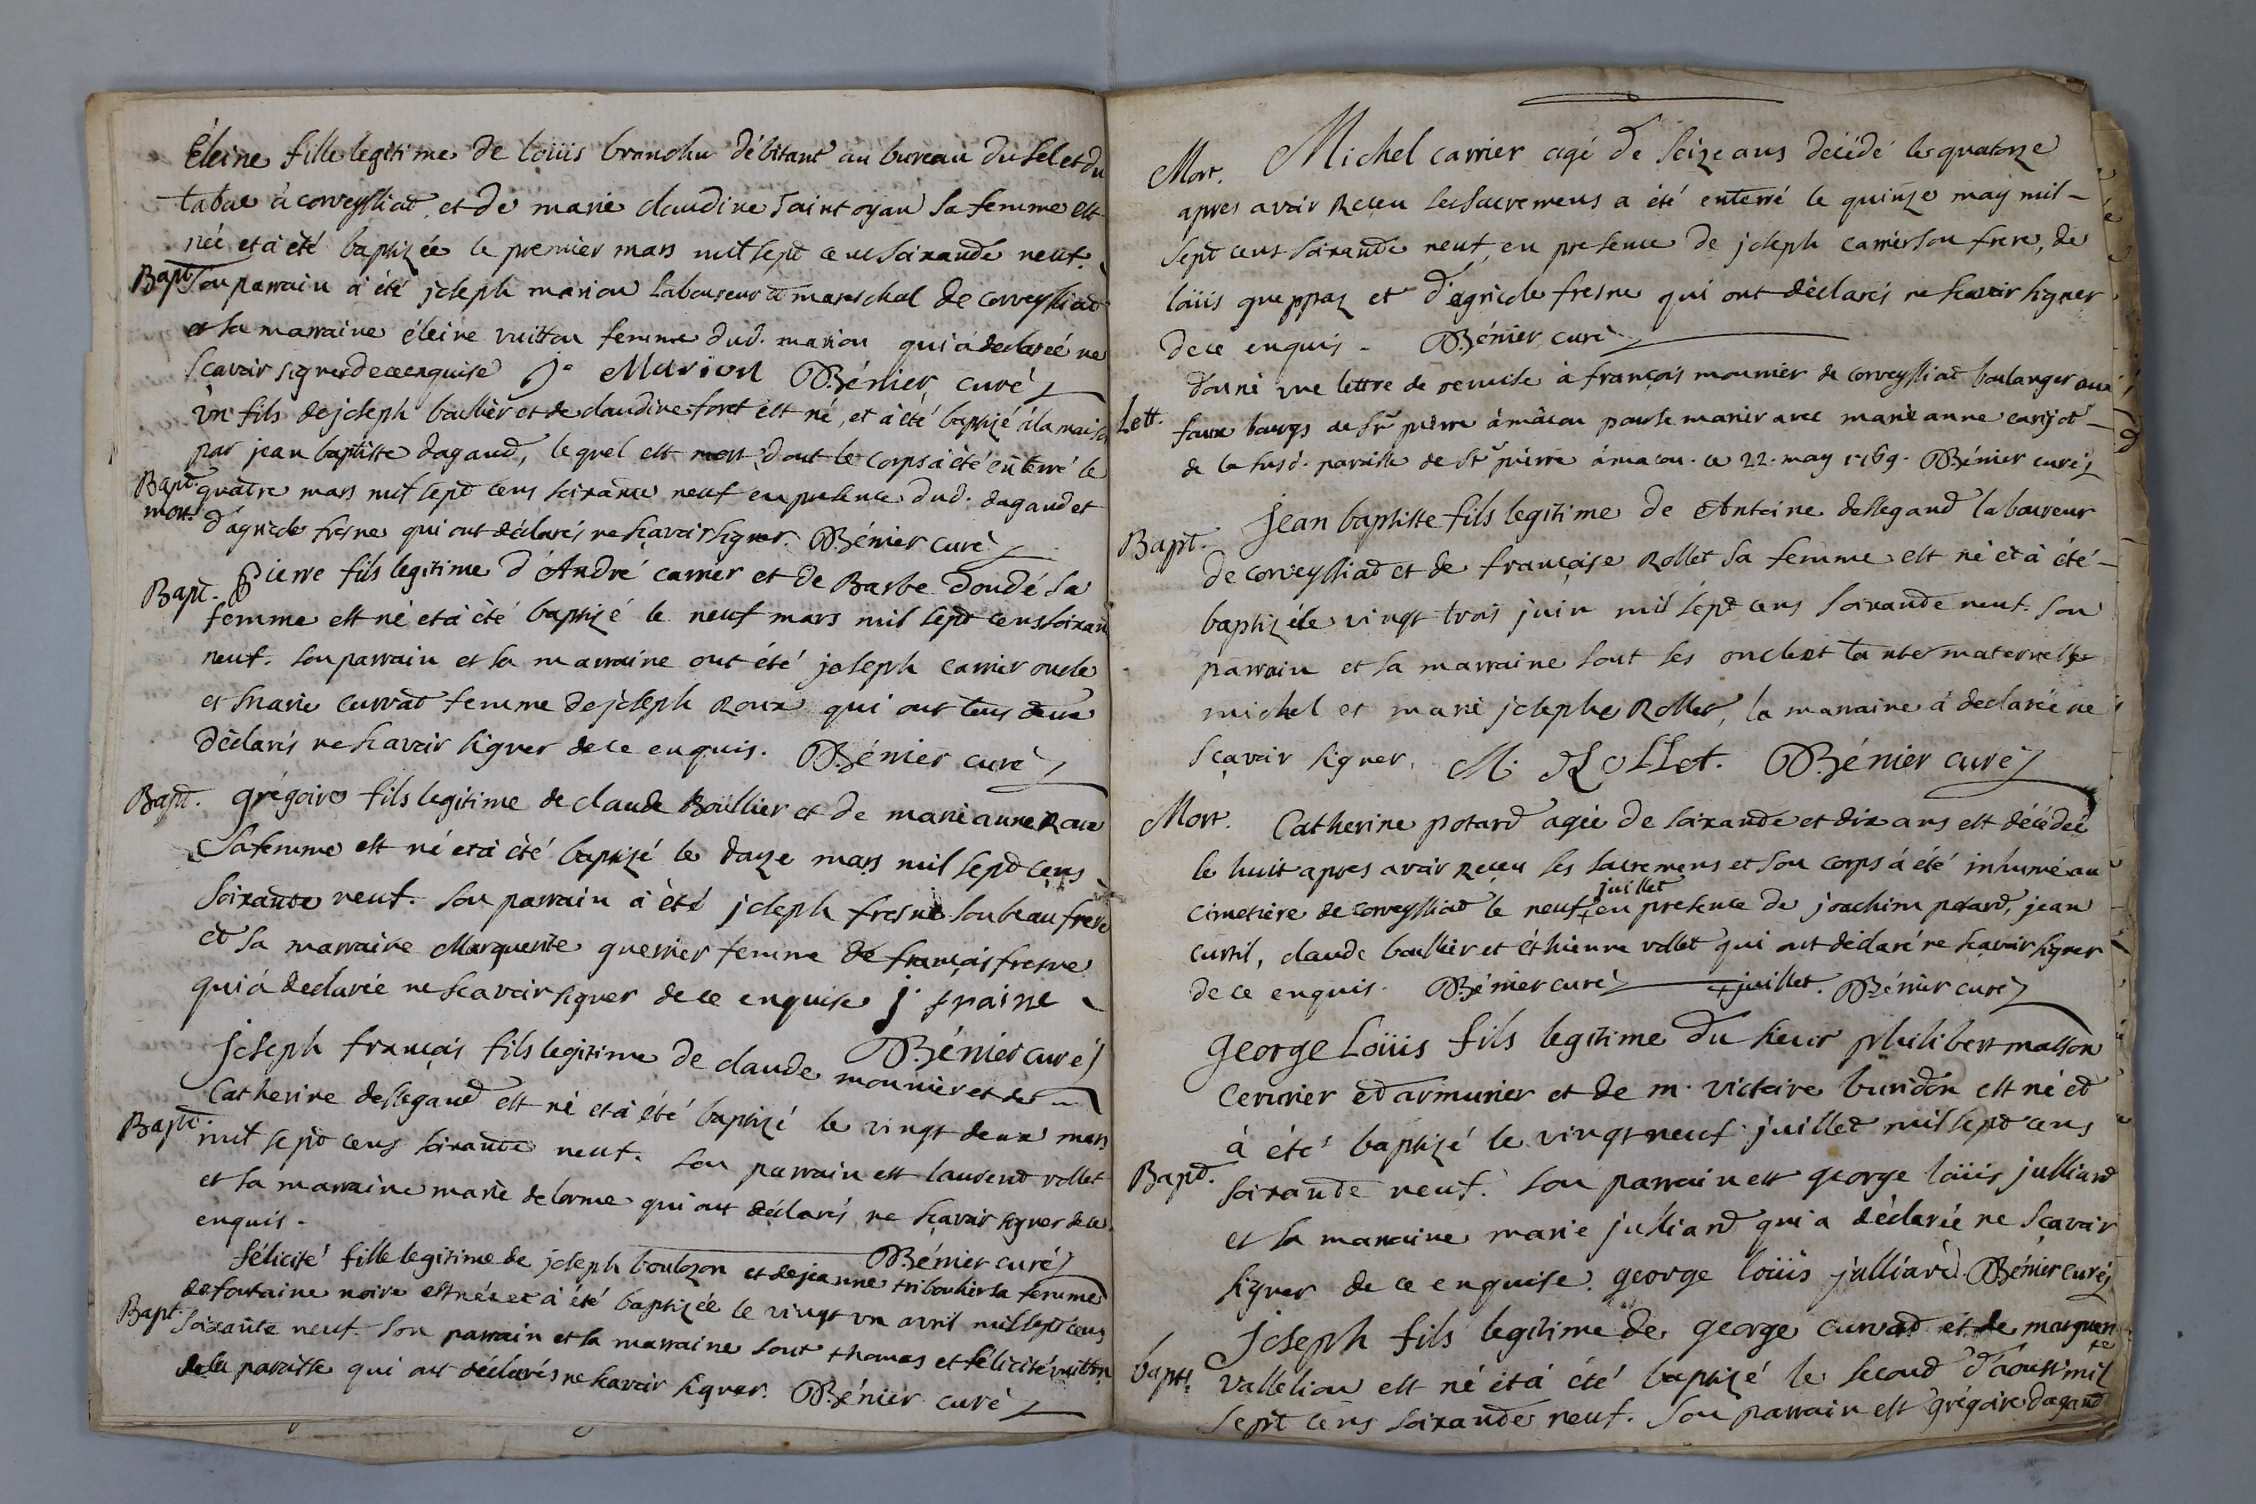 Éleine fille legitime de loüis branchu débitant au bureau du sel et du
tabac à corveyssiat, et de marie claudine Saint oyan sa femme est
née et à été baptizée le premier mars mil sept cens soixante neuf.
Bapt. Son parrain à été joseph marion laboureur et mareschal de corveyssiat
et sa marraine éleine vuitton femme dud. marion qui à declareé ne
Scavoir signer de ce enquise J. Marion Bénier curé
un fils de joseph boullier et de claudine foret est né, et à été baptizé à la maison
par jean baptiste dagand, lequel est mort, dont le corps à été enterré le
Bapt. quatre mars mil sept cens soixante neuf en presence dud. dagand et
mort. d'agricole fresne qui ont déclarés ne scavoir signer. Bénier curé
Bapt. Pierre fils legitime d'André carrier et de Barbe Doudé sa
femme est né et à été baptizé le neuf mars mil sept cens soixante
neuf. son parrain et sa marraine ont été joseph carrier oncle
et marie curvat femme de joseph Roux qui ont tous deux
déclarés ne scavoir signer de ce enquis. Bénier curé
Bapt. grégoire fils legitime de claude Boullier et de marie anne Roux
Sa femme est né et à été baptizé le douze mars mil sept cens
Soixante neuf. son parrain à été joseph fresne son beau frere
et sa marraine Marguerite guerrier femme de françois fresne
qui à declarée ne scavoir signer de ce enquise j. fraine
Bénier curé
joseph françois fils legitime de claude mounier et de
Catherine dessegand est né et à été baptizé le vingt deux mars
Bapt. mil sept cens soixante neuf. son parrain est laurend vollet
et sa marraine marie delorme qui ont déclarés ne scavoir signer de ce
enquis. Bénier curé
félicité fille legitime de joseph boulozon et de jeanne tribouhier sa femme
de fontaine noire est née et à été baptizée le vingt un avril mil sept cens
Bapt. Soixante neuf. Son parrain et sa marraine sont thomas et félicité vuitton
de la paroisse qui ont déclarés ne scavoir signer. Bénier curé
Mort. Michel carrier agé de seize ans décédé le quatorze
apres avoir Reçeu les sacremens a été enterré le quinze may mil
Sept cens soixante neuf, en presence de joseph carrier son frere, de
loüis greppaz et d'agricole fresne qui ont déclarés ne scavoir signer
de ce enquis. Bénier curé
donné une lettre de remise à françois mounier de corveyssiat boulanger aux
Lett. faux bourgs de st pierre à mâcon pour se marier avec marie anne carijot
de la susd. paroisse de st pierre à macon. ce 22. may 1769. Bénier curé
Bapt. Jean baptiste fils legitime de Antoine dessegand laboureur
de corveyssiat et de françoise Rollet sa femme est né et à été
baptizé le vingt trois juin mil sept cens soixante neuf. son
parrain et sa marraine sont ses oncle et tante maternelle
michel et marie josephe Rollet, la marraine à declarée ne
sçavoir signer. M. Rollet. Bénier curé
Mort. Catherine potard agée de soixante et dix ans est décédée
le huit apres avoir reçeu les sacremens et son corps à été inhumé au
juillet
cimetière de corveyssiat le neuf + en presence de joachim potard, jean
curtil, claude boullier et éthienne vollet qui ont déclaré ne scavoir signer
de ce enquis. Bénier curé + juillet. Bénier curé
george Loüis fils legitime du sieur philibert masson
cerurier et armurier et de m. victoire buridon est né et
à été baptizé le vingt neuf juillet mil sept cens
Bapt. soixante neuf. son parrain est george loüis julliard
et sa marraine marie julliard qui a déclarée ne scavoir
signer de ce enquise. george loüis julliard Bénier curé
Joseph fils legitime de george curvat et de marguerite
bapt. vallelion est né et à été baptizé le second d'aoust mil
sept cens soixante neuf. son parrain est grégoire dagand